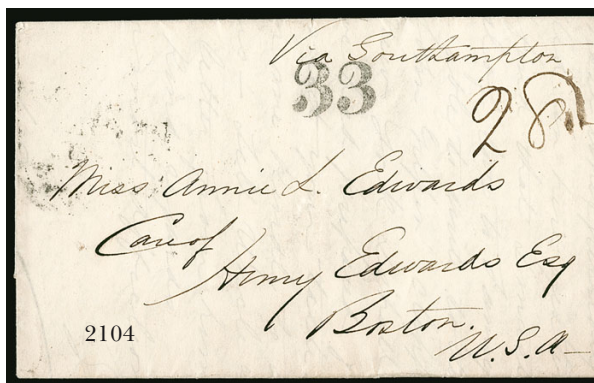 Via Southampton
33
28
Miss Annie L. Edwards
Care of
Henry Edwards Esq
Boston.
U.S.A
2104